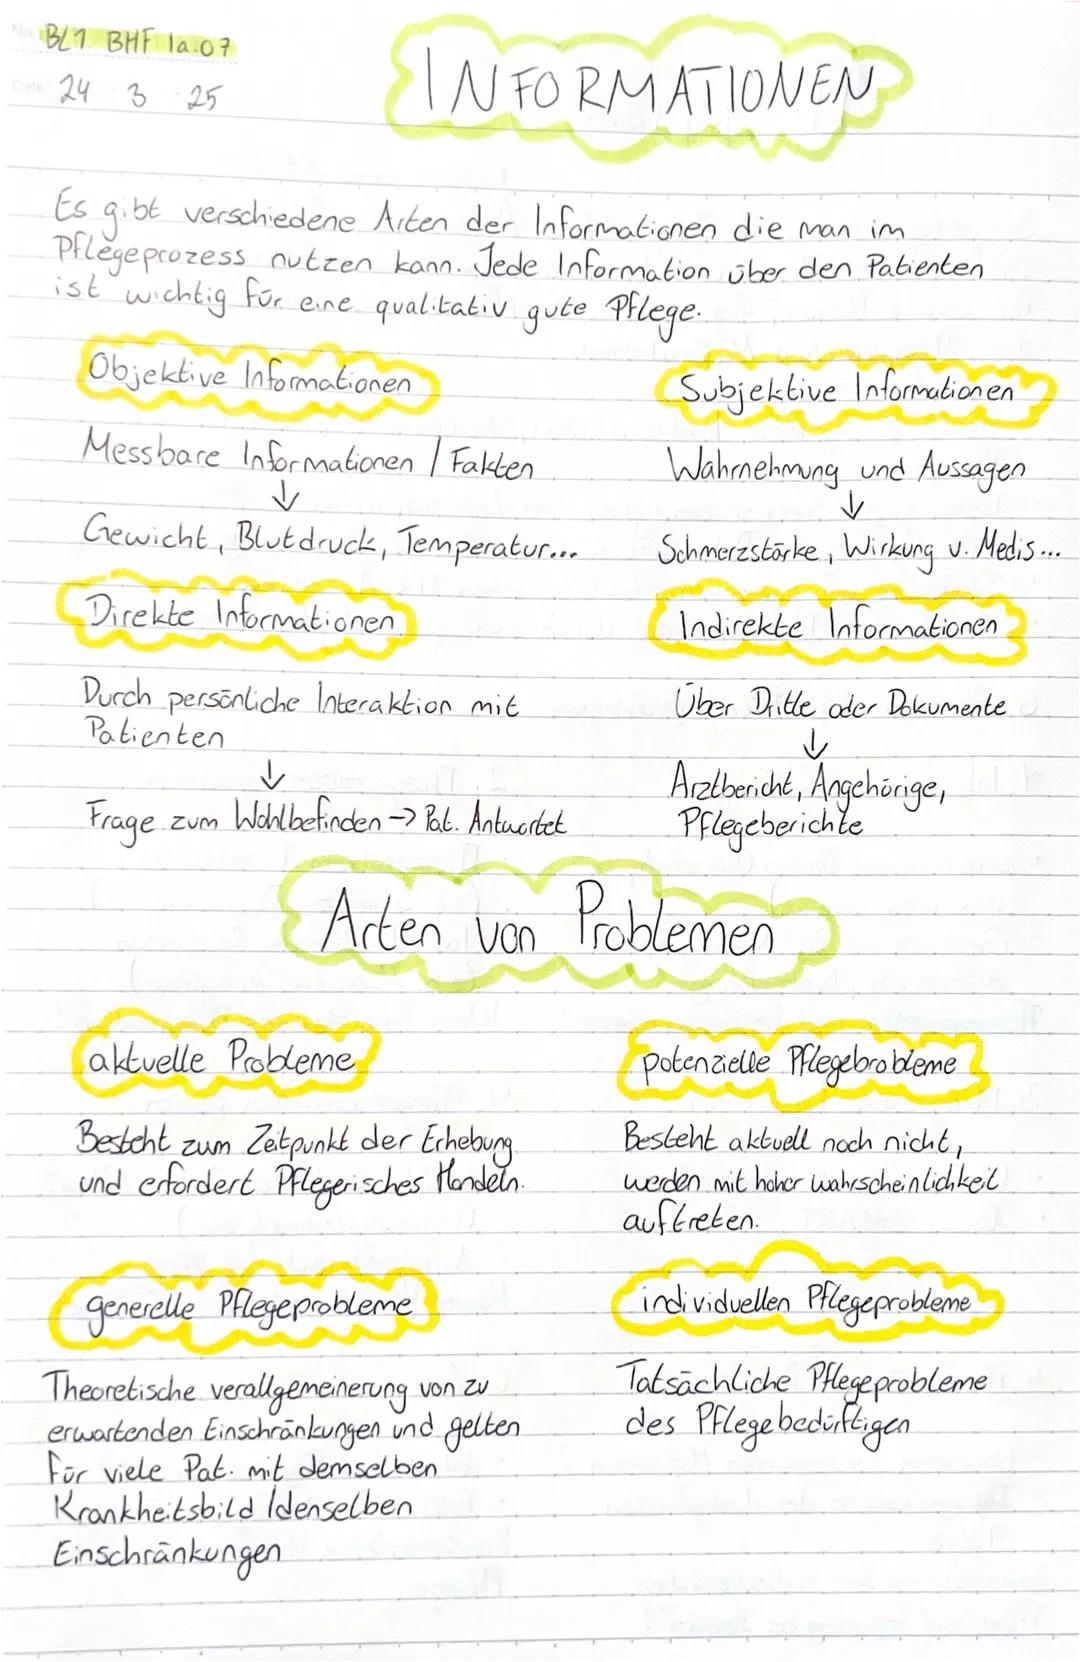 No. BL1 BHF 1a.07
Date 24 3 25
INFORMATIONEN
Es gibt verschiedene Arten der Informationen die man im
Pflegeprozess nutzen kann. Jede Information über den Patienten
ist wichtig für eine qualitativ gute Pflege.
Objektive Informationen
Messbare Informationen / Fakten
↓
Gewicht, Blutdruck, Temperatur...
Subjektive Informationen
Wahrnehmung und Aussagen
↓
Schmerzstärke, Wirkung v. Medis...
Direkte Informationen
Durch persönliche Interaktion mit
Patienten
↓
Frage zum Wohlbefinden → Pat. Antwortet
Indirekte Informationen
Über Dritte oder Dokumente
↓
Arztbericht, Angehörige,
Pflegeberichte
Arten von Problemen
aktuelle Probleme
Besteht zum Zeitpunkt der Erhebung
und erfordert Pflegerisches Handeln.
potenzielle Pflegebrobleme
Besteht aktuell noch nicht,
werden mit hoher wahrscheinlichkeit
auftreten.
generelle Pflegeprobleme
Theoretische verallgemeinerung von zu
erwartenden Einschränkungen und gelten
für viele Pat. mit demselben
Krankheitsbild /denselben
Einschränkungen
individuellen Pflegeprobleme
Tatsächliche Pflegeprobleme
des Pflegebedürftigen